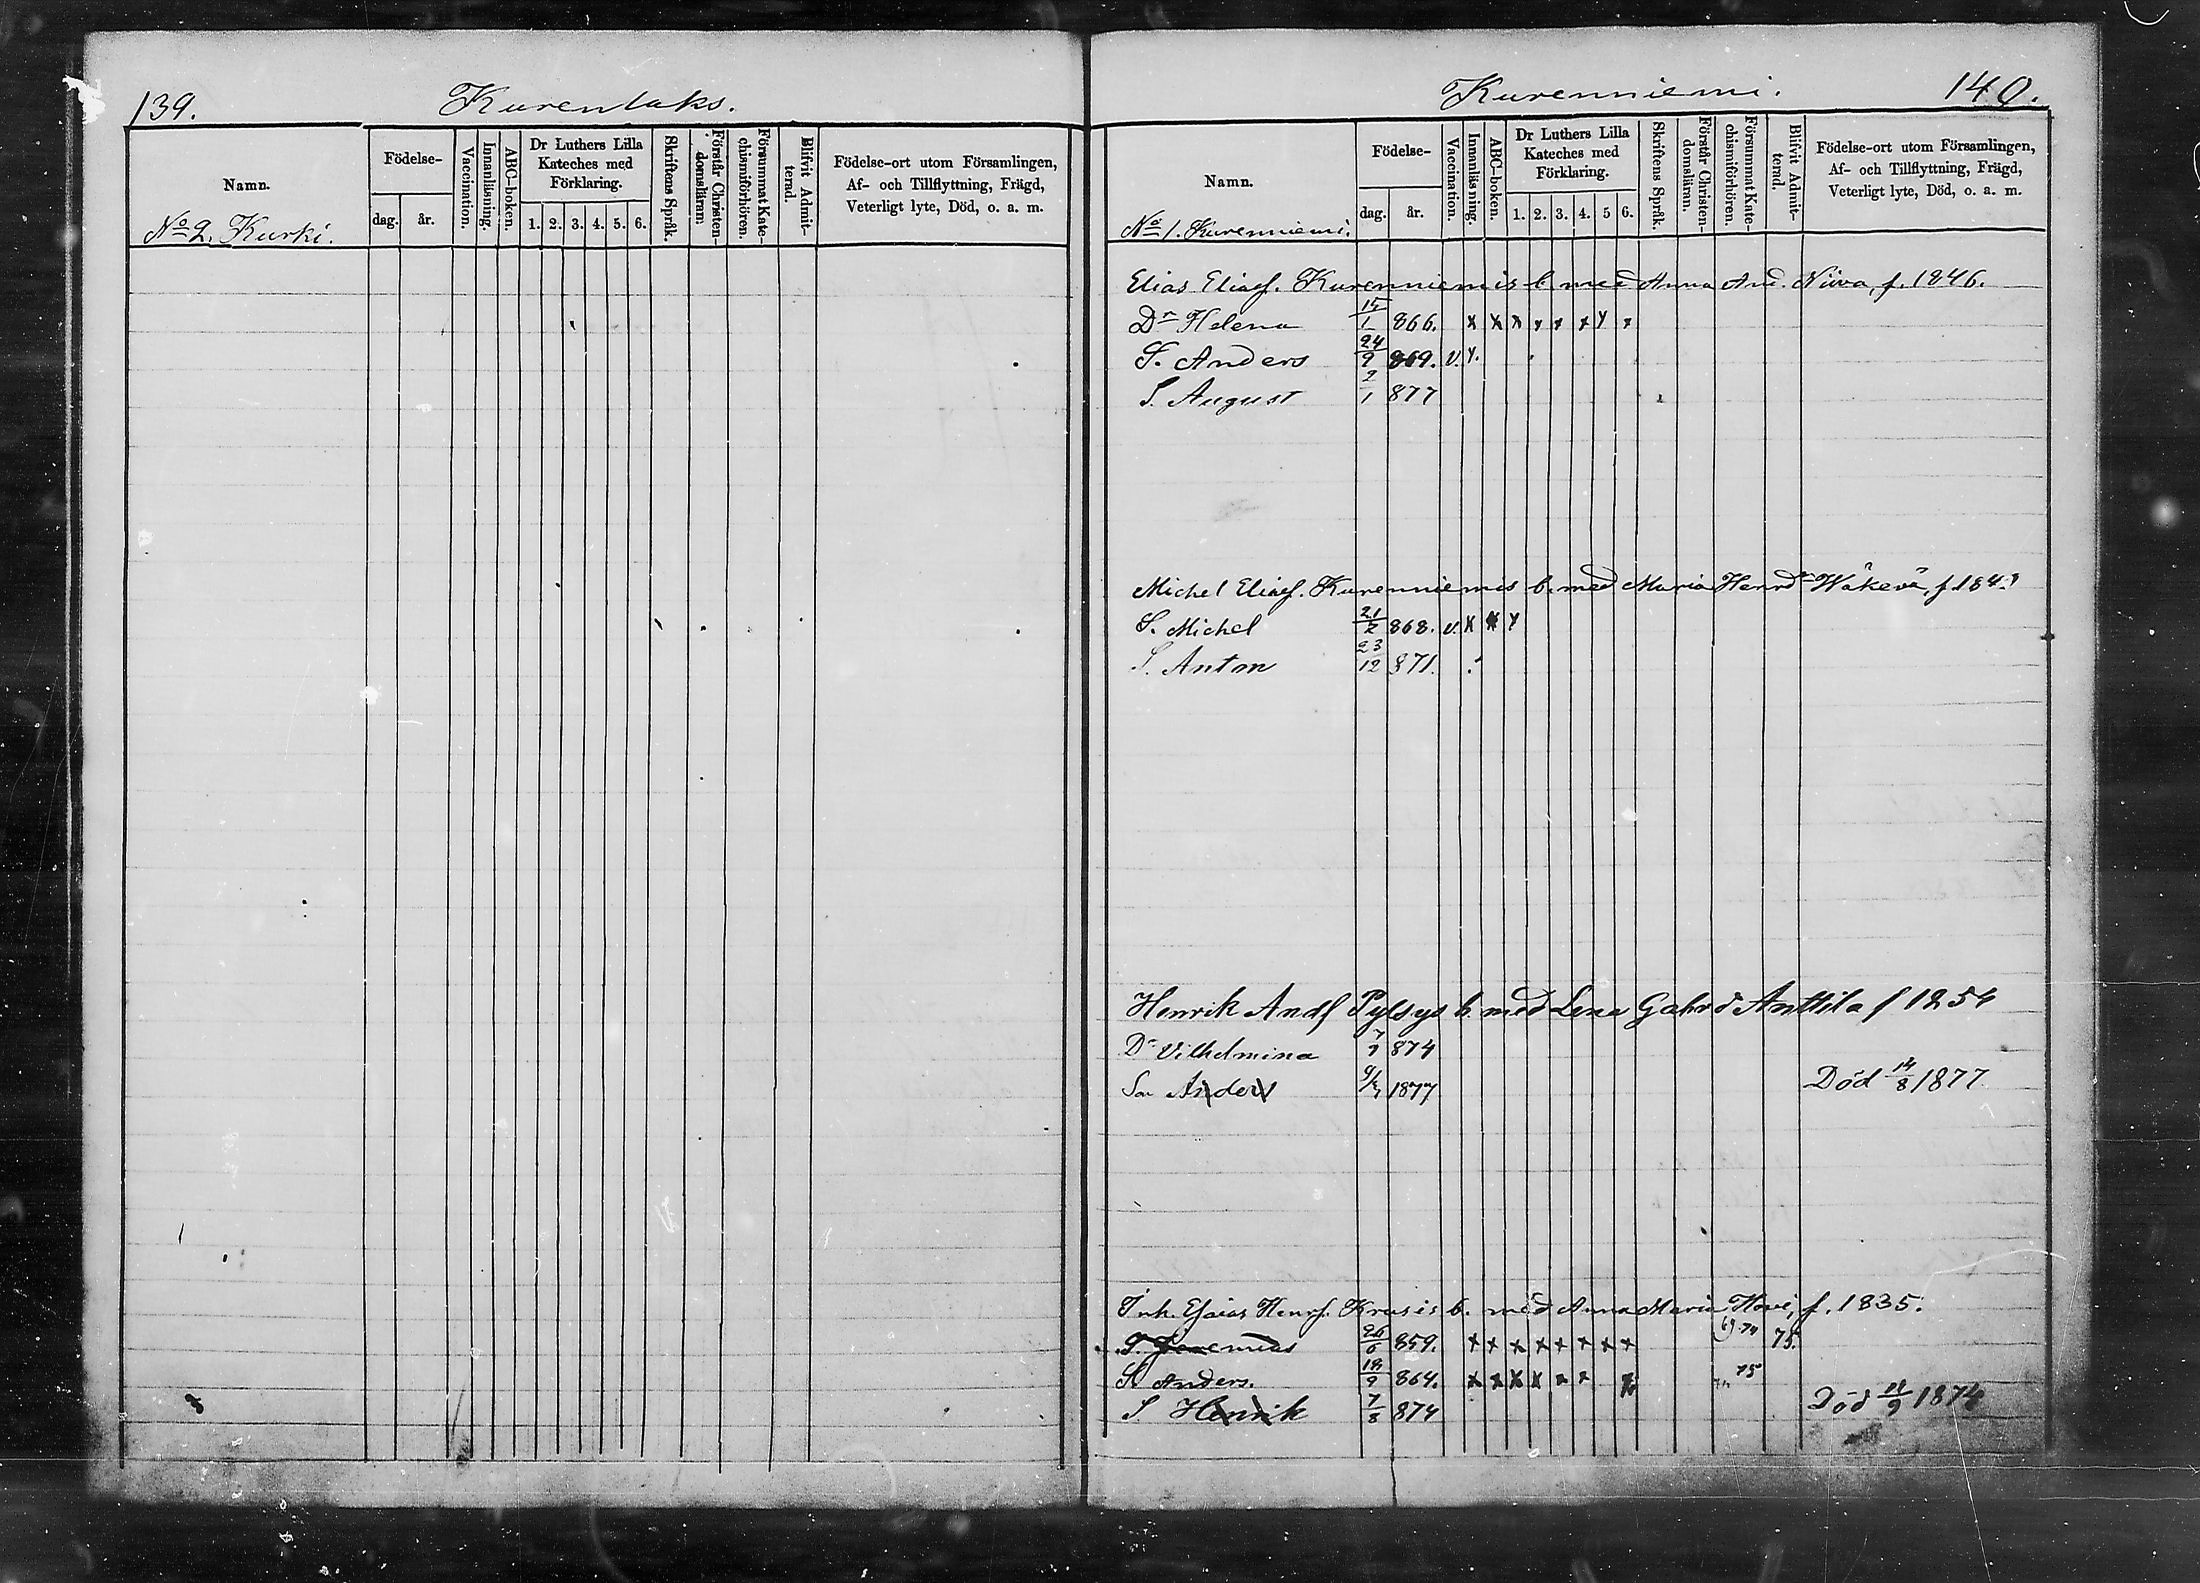 139.
Kurenlaks.
Namn.
Födelse-
dag.
år.
Vaccination.
Innanläsning.
ABC-boken.
Dr Luthers Lilla
Kateches med
Förklaring.
1. 2. 3. 4. 5. 6.
Skriftens Språk.
Förstår Christen-
domsläran.
Försummat Kate-
chismiförhören.
Blifvit Admit-
terad.
Födelse-ort utom Församlingen,
Af- och Tillflyttning, Frägd,
Veterligt lyte, Död, o. a. m.
No 2. Kurki.
Kurenniemi.
140.
Namn.
Födelse-
dag.
år.
Vaccination.
Innanläsning.
ABC-boken.
Dr Luthers Lilla
Kateches med
Förklaring.
1. 2. 3. 4. 5 6.
Skriftens Språk.
Förstår Christen-
domsläran.
Försummat Kate-
chismiförhören.
Blifvit Admit-
terad.
Födelse-ort utom Församlingen,
Af- och Tillflyttning, Frägd,
Veterligt lyte, Död, o. a. m.
No 1. Kurenniemi.
Elias Eliaes. Kurenniemis b. med Anna And. Niiva, f. 1846.
Dr Helena 15/1 866. x x x x x x y x
S. Anders 24/9 869. v. y.
S. August 2/1 877
Michel Eliaes. Kurenniemis b. med Maria Henrdr Wäkevä, f. 184
S. Michel 21/2 868. v. x x y
S. Anton 23/12 871.
Henrik Andf Pylsys b. med Lena Gabrd Anttila f 1854
Dr Vilhelmina 7/9 874
Son Anders 9/7 1877 Död 14/8 1877
Inh. Esaias Henrs. Krusis b. med Anna Maria Hovi, f. 1835.
S. Jeremias 26/6 859. x x x x x x x x 69.74 75.
S. Anders. 18/9 864. x x x x x x x 75
S Henrik 7/8 874 Död 11/9 1874